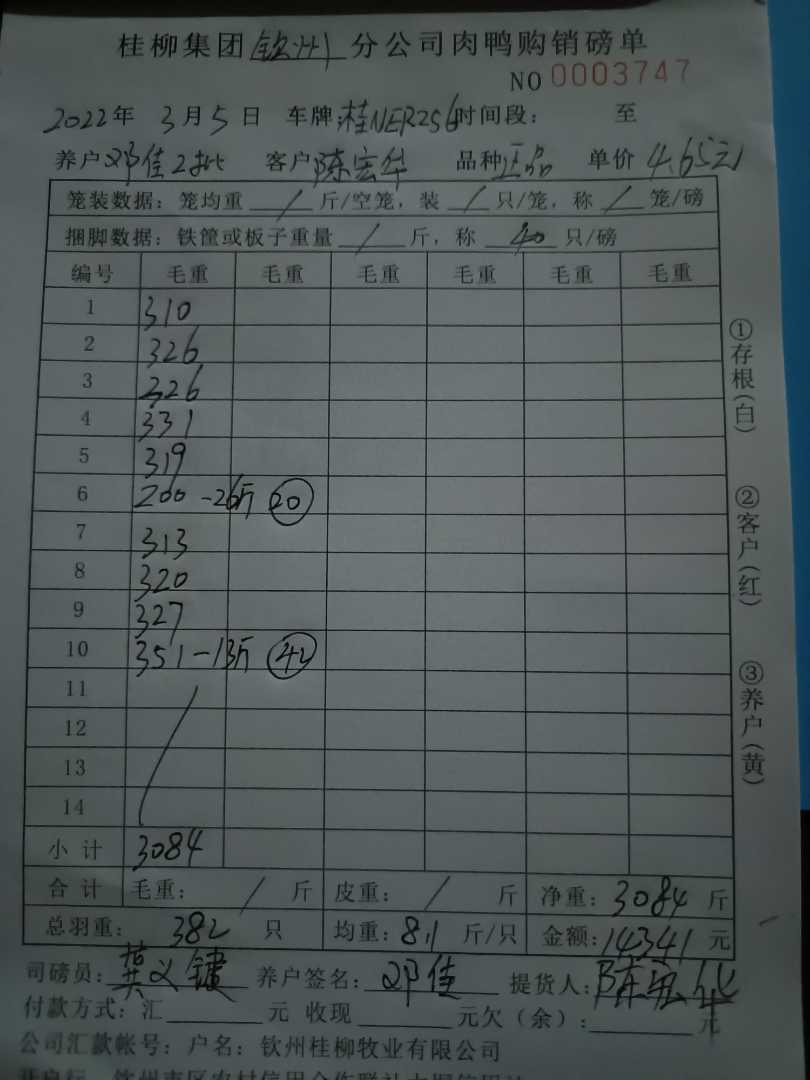 桂柳集团钦州分公司肉鸭购销磅单
NO 0003747
2022年 3月5日 车牌:桂NER256 时间段: 至
养户邓佳2批 客户陈宏华 品种正品 单价4.65元
笼装数据: 笼均重 / 斤/空笼, 装 / 只/笼, 称 / 笼/磅
捆脚数据: 铁筐或板子重量 / 斤, 称 40 只/磅
编号 毛重 毛重 毛重 毛重 毛重 毛重
1 310
2 326
3 326
4 331
5 319
6 200 -26斤 20
7 313
8 320
9 327
10 351 -13斤 42
11
12
13
14
小计 3084
合计 毛重: / 斤 皮重: / 斤 净重: 3084 斤
总羽重: 382 只 均重: 8.1 斤/只 金额: 14341 元
司磅员: 义键 养户签名: 邓佳 提货人: 陈宏华
付款方式: 汇 元 收现 元欠(余): 元
公司汇款帐号: 户名: 钦州桂柳牧业有限公司
①存根(白)
②客户(红)
③养户(黄)